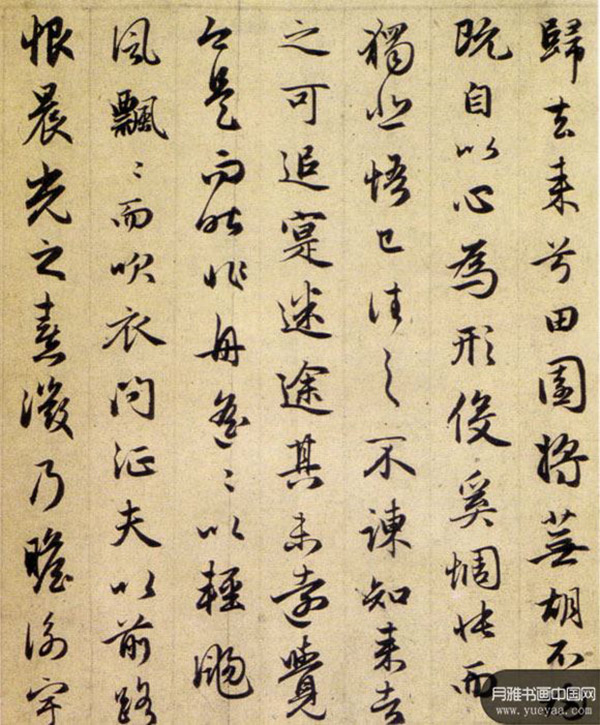 歸去来兮田園將蕪胡不
既自以心為形役奚惆悵而
獨悲悟已往之不諫知来者
之可追寔迷途其未遠覺
今是而昨非舟遙〻以輕颺
風飄〻而吹衣問征夫以前路
恨晨光之熹微乃瞻衡宇
月雅书画中国网
www.yueyaa.com